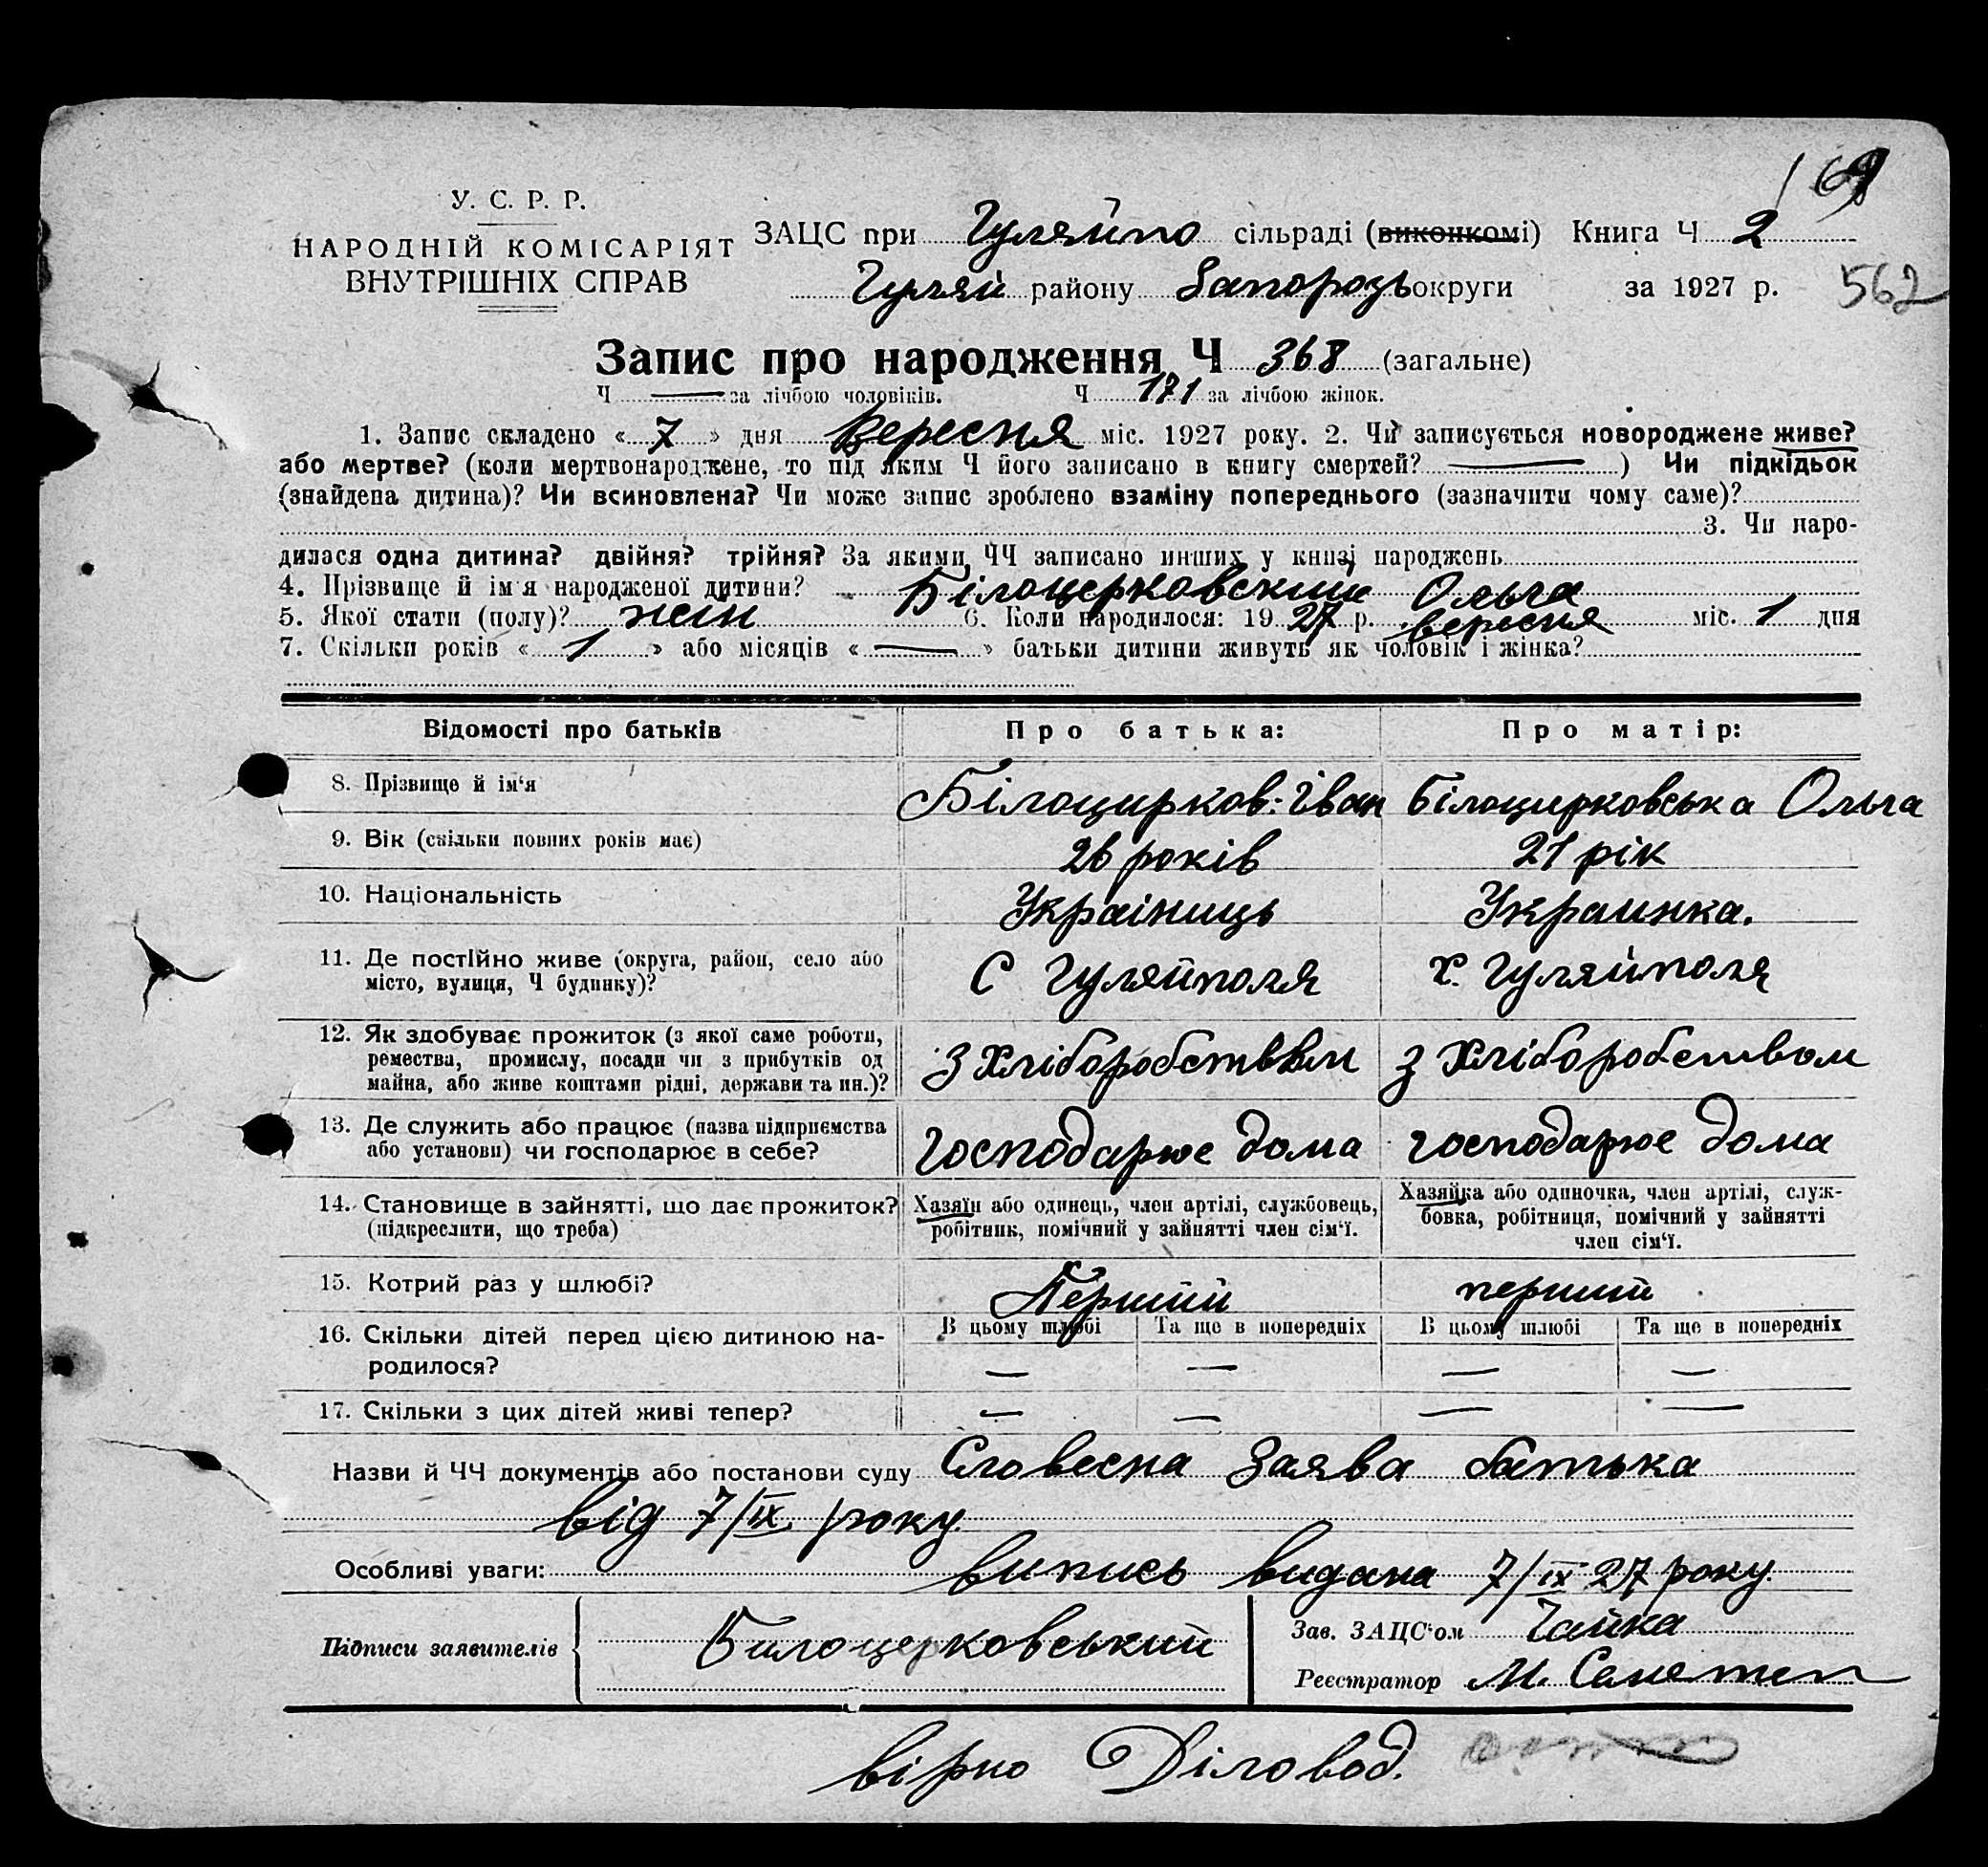 169
У. С. Р. Р.
НАРОДНІЙ КОМІСАРІЯТ
ВНУТРІШНІХ СПРАВ
ЗАЦС при Гуляйпо сільраді (виконкомі) Книга Ч 2
Гуляй району Запорозь округи за 1927 р. 562
Запис про народження Ч 368 (загальне)
Ч — за лічбою чоловіків. Ч 171 за лічбою жінок.
1. Запис складено « 7 » дня Вересня міс. 1927 року. 2. Чи записується новороджене живе?
або мертве? (коли мертвонароджене, то під яким Ч його записано в книгу смертей? — ) Чи підкідьок
(знайдена дитина)? Чи всиновлена? Чи може запис зроблено взаміну попереднього (зазначити чому саме)?
3. Чи наро-
дилася одна дитина? двійня? трійня? За якими ЧЧ записано инших у книзі народжень
4. Прізвище й ім'я народженої дитини? Білоцерковський Ольга
5. Якої стати (полу)? жін 6. Коли народилося: 19 27 р. вересня міс. 1 дня
7. Скільки років « 1 » або місяців « — » батьки дитини живуть як чоловік і жінка?
Відомості про батьків Про батька: Про матір:
8. Прізвище й ім'я Білоцирков: Іван Білоцирковська Ольга
9. Вік (скільки повних років має) 26 років 21 рік
10. Національність Украіниць Украинка.
11. Де постійно живе (округа, район, село або
місто, вулиця, Ч будинку)? С Гуляйполя х. Гуляйполя
12. Як здобуває прожиток (з якої саме роботи,
ремества, промислу, посади чи з прибутків од
майна, або живе коштами рідні, держави та ин.)? З Хліборобством з Хліборобством
13. Де служить або працює (назва підприємства
або установи) чи господарює в себе? господарює дома господарює дома
14. Становище в зайнятті, що дає прожиток?
(підкреслити, що треба)
Хазяїн або одинець, член артілі, службовець,
робітник, помічний у зайнятті член сім'ї.
Хазяйка або одиночка, член артілі, служ-
бовка, робітниця, помічний у зайнятті
член сім'ї.
15. Котрий раз у шлюбі? Перший перший
16. Скільки дітей перед цією дитиною на-
родилося?
В цьому шлюбі Та ще в попередніх В цьому шлюбі Та ще в попередніх
— — — —
17. Скільки з цих дітей живі тепер? — — — —
Назви й ЧЧ документів або постанови суду Словесна Заява батька
від 7/IX року.
Особливі уваги: випись видана 7/IX 27 року.
Підписи заявителів Билоцерковський
Зав. ЗАЦС'ом Чайка
Реєстратор М.
вірно Діловод.